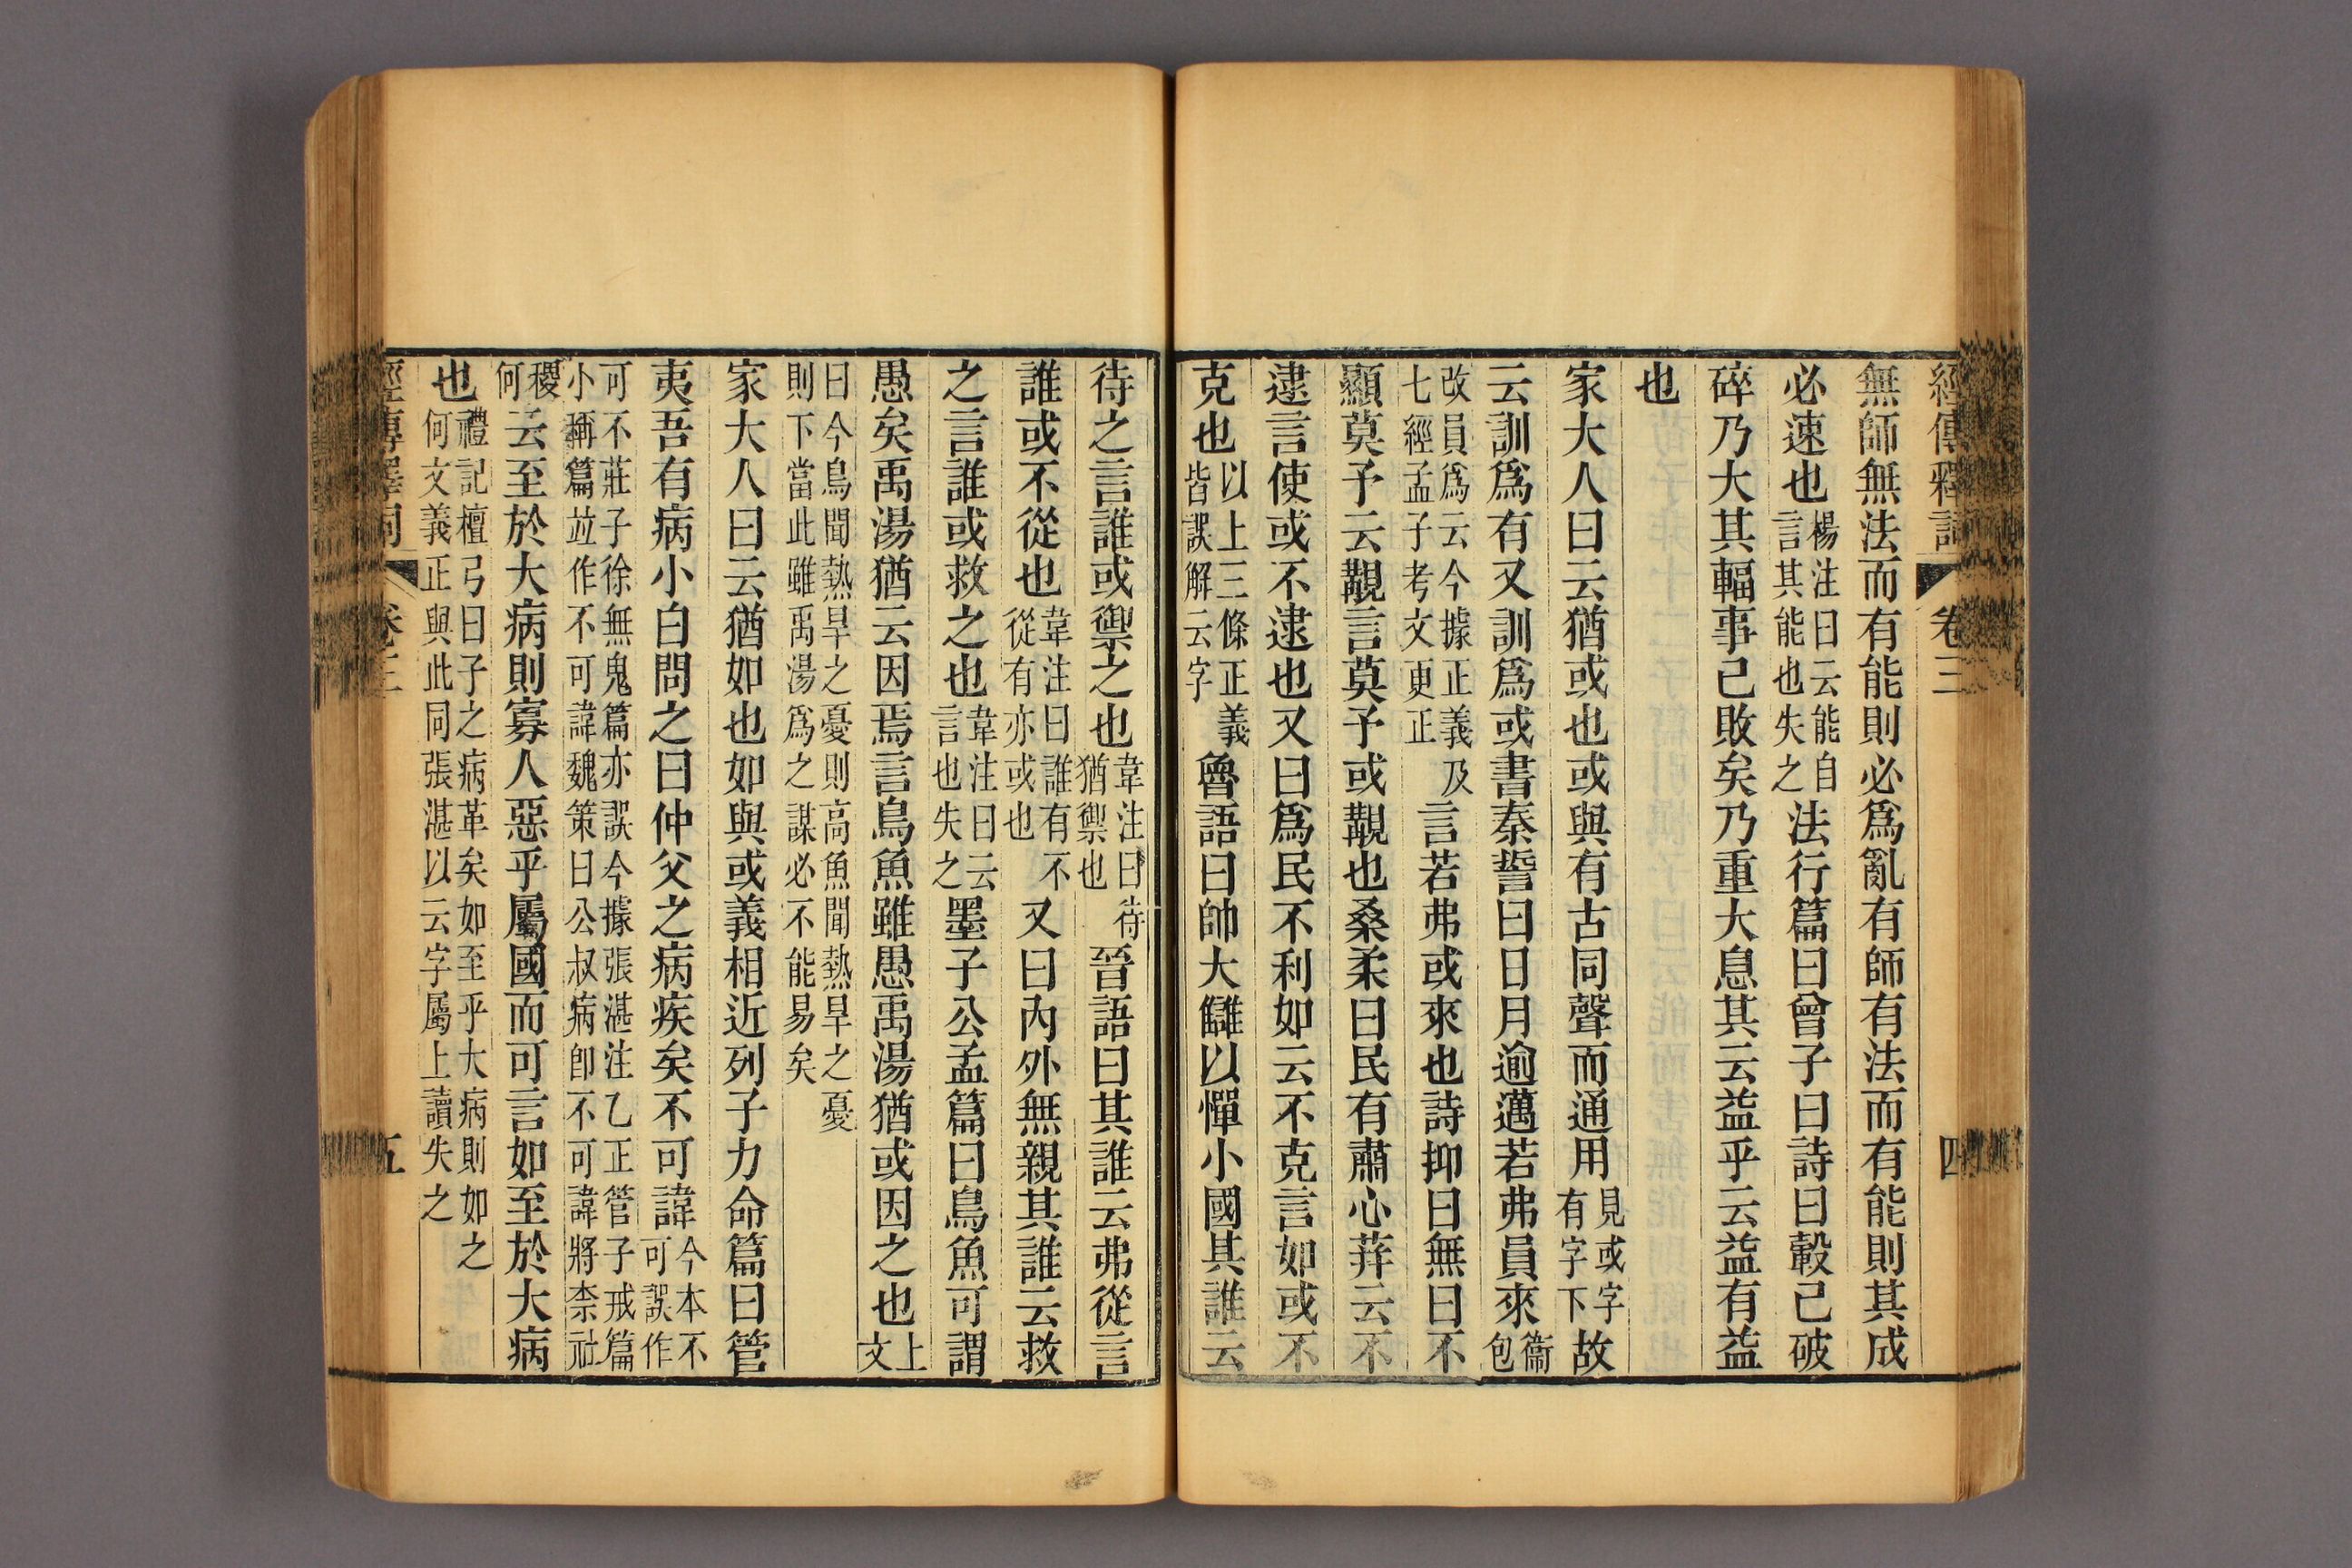 經傳釋詞 卷三 四
無師無法而有能則必爲亂有師有法而有能則其成
必速也楊注曰云能自言其能也失之法行篇曰曾子曰詩曰轂已破
碎乃大其輻事已敗矣乃重大息其云益乎云益有益
也
家大人曰云猶或也或與有古同聲而通用見或字有字下故
云訓爲有又訓爲或書秦誓曰日月逾邁若弗員來衞包
改員爲云今據正義及七經孟子考文更正言若弗或來也詩抑曰無曰不
顯莫予云覯言莫予或覯也桑柔曰民有肅心荓云不
逮言使或不逮也又曰爲民不利如云不克言如或不
克也以上三條正義皆誤解云字魯語曰帥大讎以憚小國其誰云
待之言誰或禦之也韋注曰待猶禦也晉語曰其誰云弗從言
誰或不從也韋注曰誰有不從有亦或也又曰內外無親其誰云救
之言誰或救之也韋注曰云言也失之墨子公孟篇曰鳥魚可謂
愚矣禹湯猶云因焉言鳥魚雖愚禹湯猶或因之也上文
曰今鳥聞熱旱之憂則高魚聞熱旱之憂則下當此雖禹湯爲之謀必不能易矣
家大人曰云猶如也如與或義相近列子力命篇曰管
夷吾有病小白問之曰仲父之病疾矣不可諱今本不可誤作
可不莊子徐無鬼篇亦誤今據張湛注乙正管子戒篇小稱篇竝作不可諱魏策曰公叔病卽不可諱將柰社
稷何云至於大病則寡人惡乎屬國而可言如至於大病
也禮記檀弓曰子之病革矣如至乎大病則如之何文義正與此同張湛以云字屬上讀失之
經傳釋詞 卷三 五